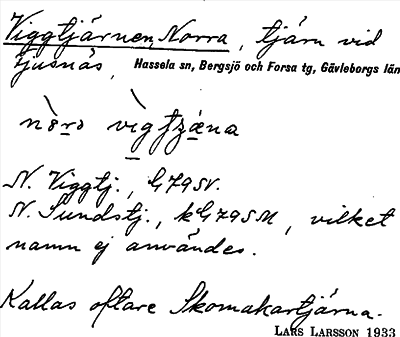 Viggtjärnen, Norra, tjärn vid
Ljusnäs, Hassela sn, Bergsjö och Forsa tg, Gävleborgs län
N. Viggtj., G79SV.
N. Sundstj., kG79SM, vilket
namn ej användes.
Kallas oftare Skomakartjärna.
LARS LARSSON 1933